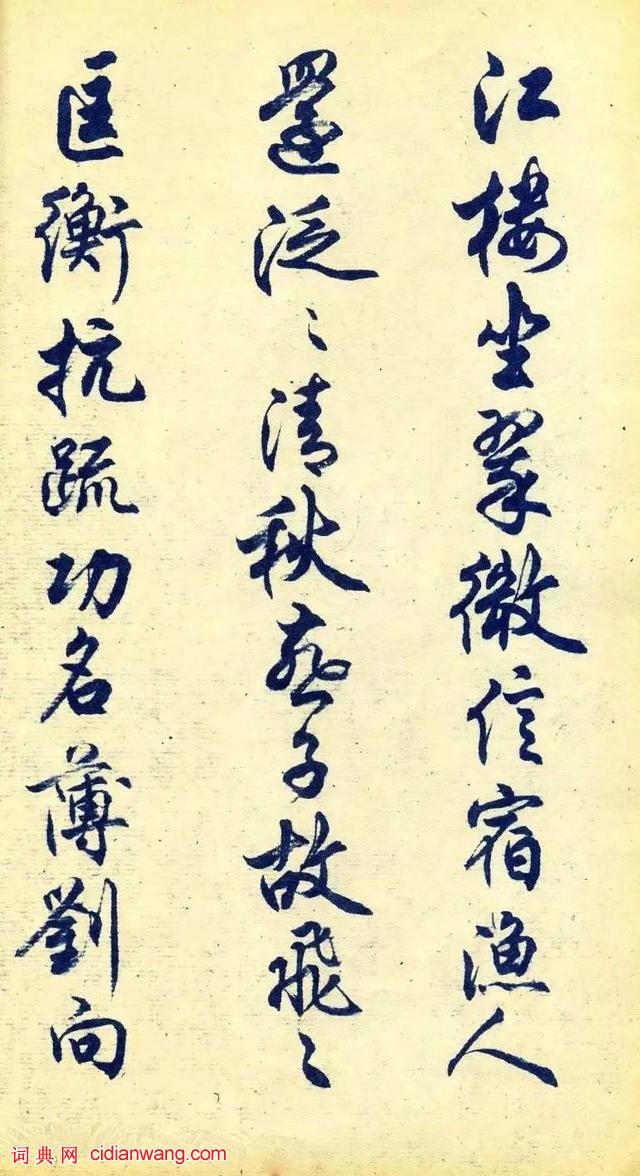 江楼坐翠微信宿漁人
還泛〻清秋燕子故飛〻
匡衡抗疏功名薄劉向
词典网 cidianwang.com